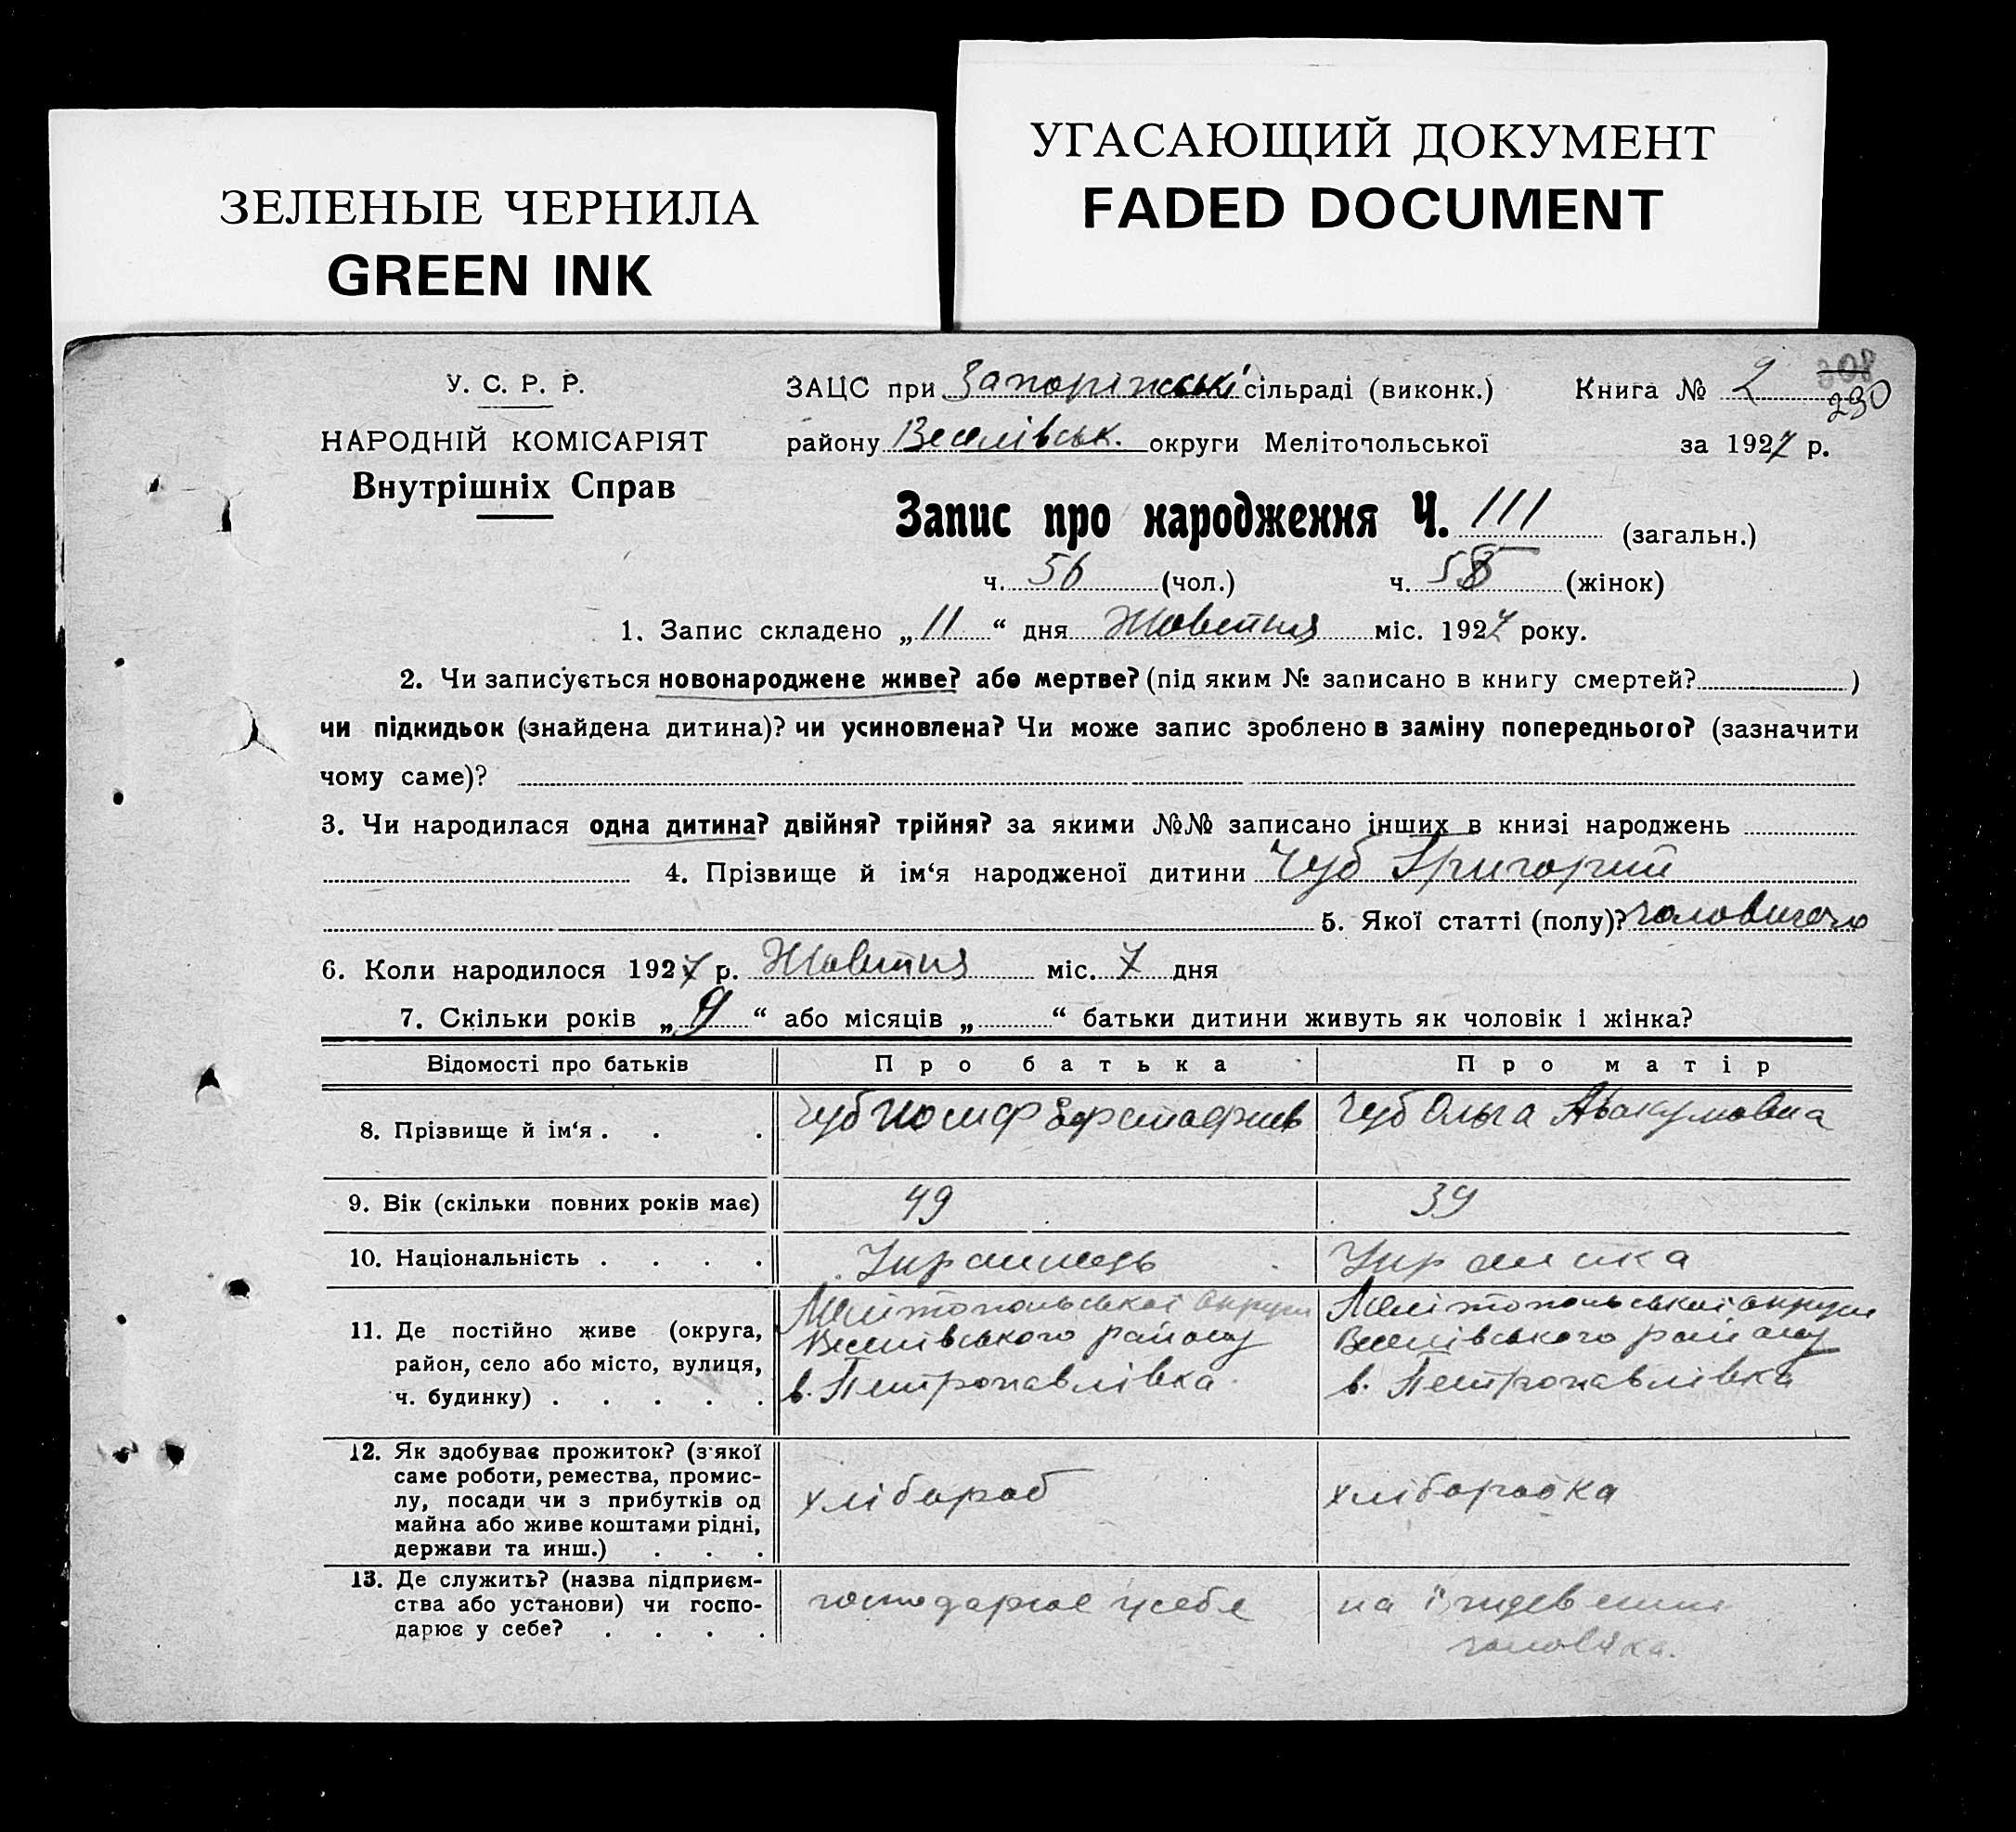 УГАСАЮЩИЙ ДОКУМЕНТ
FADED DOCUMENT
ЗЕЛЕНЫЕ ЧЕРНИЛА
GREEN INK
308
230
У. С. Р. Р.
НАРОДНІЙ КОМІСАРІЯТ
Внутрішніх Справ
ЗАЦС при Запоріжські сільраді (виконк.) Книга № 2
району Веселівськ. округи Мелітопольської за 1927 р.
Запис про народження Ч. 111 (загальн.)
ч. 56 (чол.) ч. 55 (жінок)
1. Запис складено „11“ дня Жовтня міс. 1927 року.
2. Чи записується новонароджене живе? або мертве? (під яким № записано в книгу смертей? )
чи підкидьок (знайдена дитина)? чи усиновлена? Чи може запис зроблено в заміну попереднього? (зазначити
чому саме)?
3. Чи народилася одна дитина? двійня? трійня? за якими №№ записано інших в книзі народжень
4. Прізвище й ім‘я народженої дитини Чуб Григорий
5. Якої статті (полу)? чоловичого
6. Коли народилося 1927 р. Жовтня міс. 7 дня
7. Скільки років „9“ або місяців „ “ батьки дитини живуть як чоловік і жінка?
Відомості про батьків Про батька Про матір
8. Прізвище й ім‘я . . . Чуб Иосиф Чуб Ольга Авакумовна
9. Вік (скільки повних років має) 49 39
10. Національність . . . . Українець Українка
11. Де постійно живе (округа,
район, село або місто, вулиця,
ч. будинку) . . . . .
Мелітопольськоі округи
Веселівського району
в. Петропавлівка
Мелітопольськоі округи
Веселівського району
в. Петропавлівка
12. Як здобуває прожиток? (з'якої
саме роботи, ремества, промис-
лу, посади чи з прибутків од
майна або живе коштами рідні,
держави та инш.) . . .
хлібороб
хліборобка
13. Де служить? (назва підприєм-
ства або установи) чи госпо-
дарює у себе? . . . .
господарює у себе
на чоловіка.